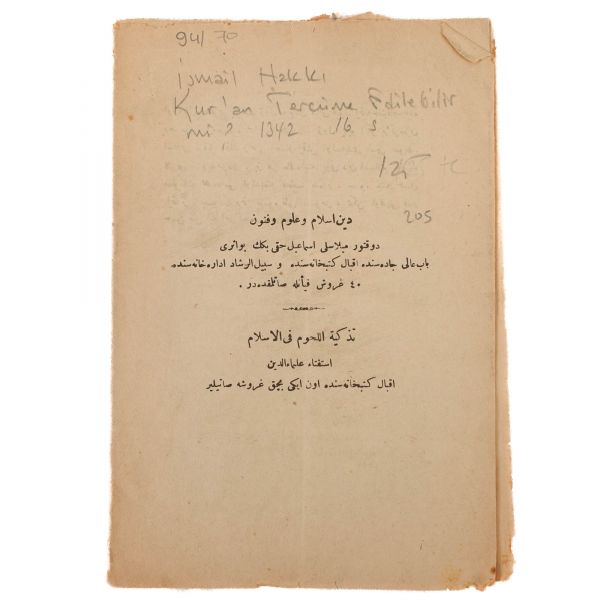 94/70
İsmail Hakkı
Kur'an Tercüme Edilebilir
mi? 1342 16 s
125 TL
205
دین اسلام و علوم و فنون
دوقتور میلاسلی اسماعیل حقی بكك بو اثری
باب عالی جاده سنده اقبال كتبخانه سنده و سبیل الرشاد اداره خانه سنده
٤٠ غروش فیأتله صاتلمقده در .
تذكیة اللحوم فی الاسلام
استفتاء علماء الدین
اقبال كتبخانه سنده اون ایكی بچق غروشه صاتیلیر